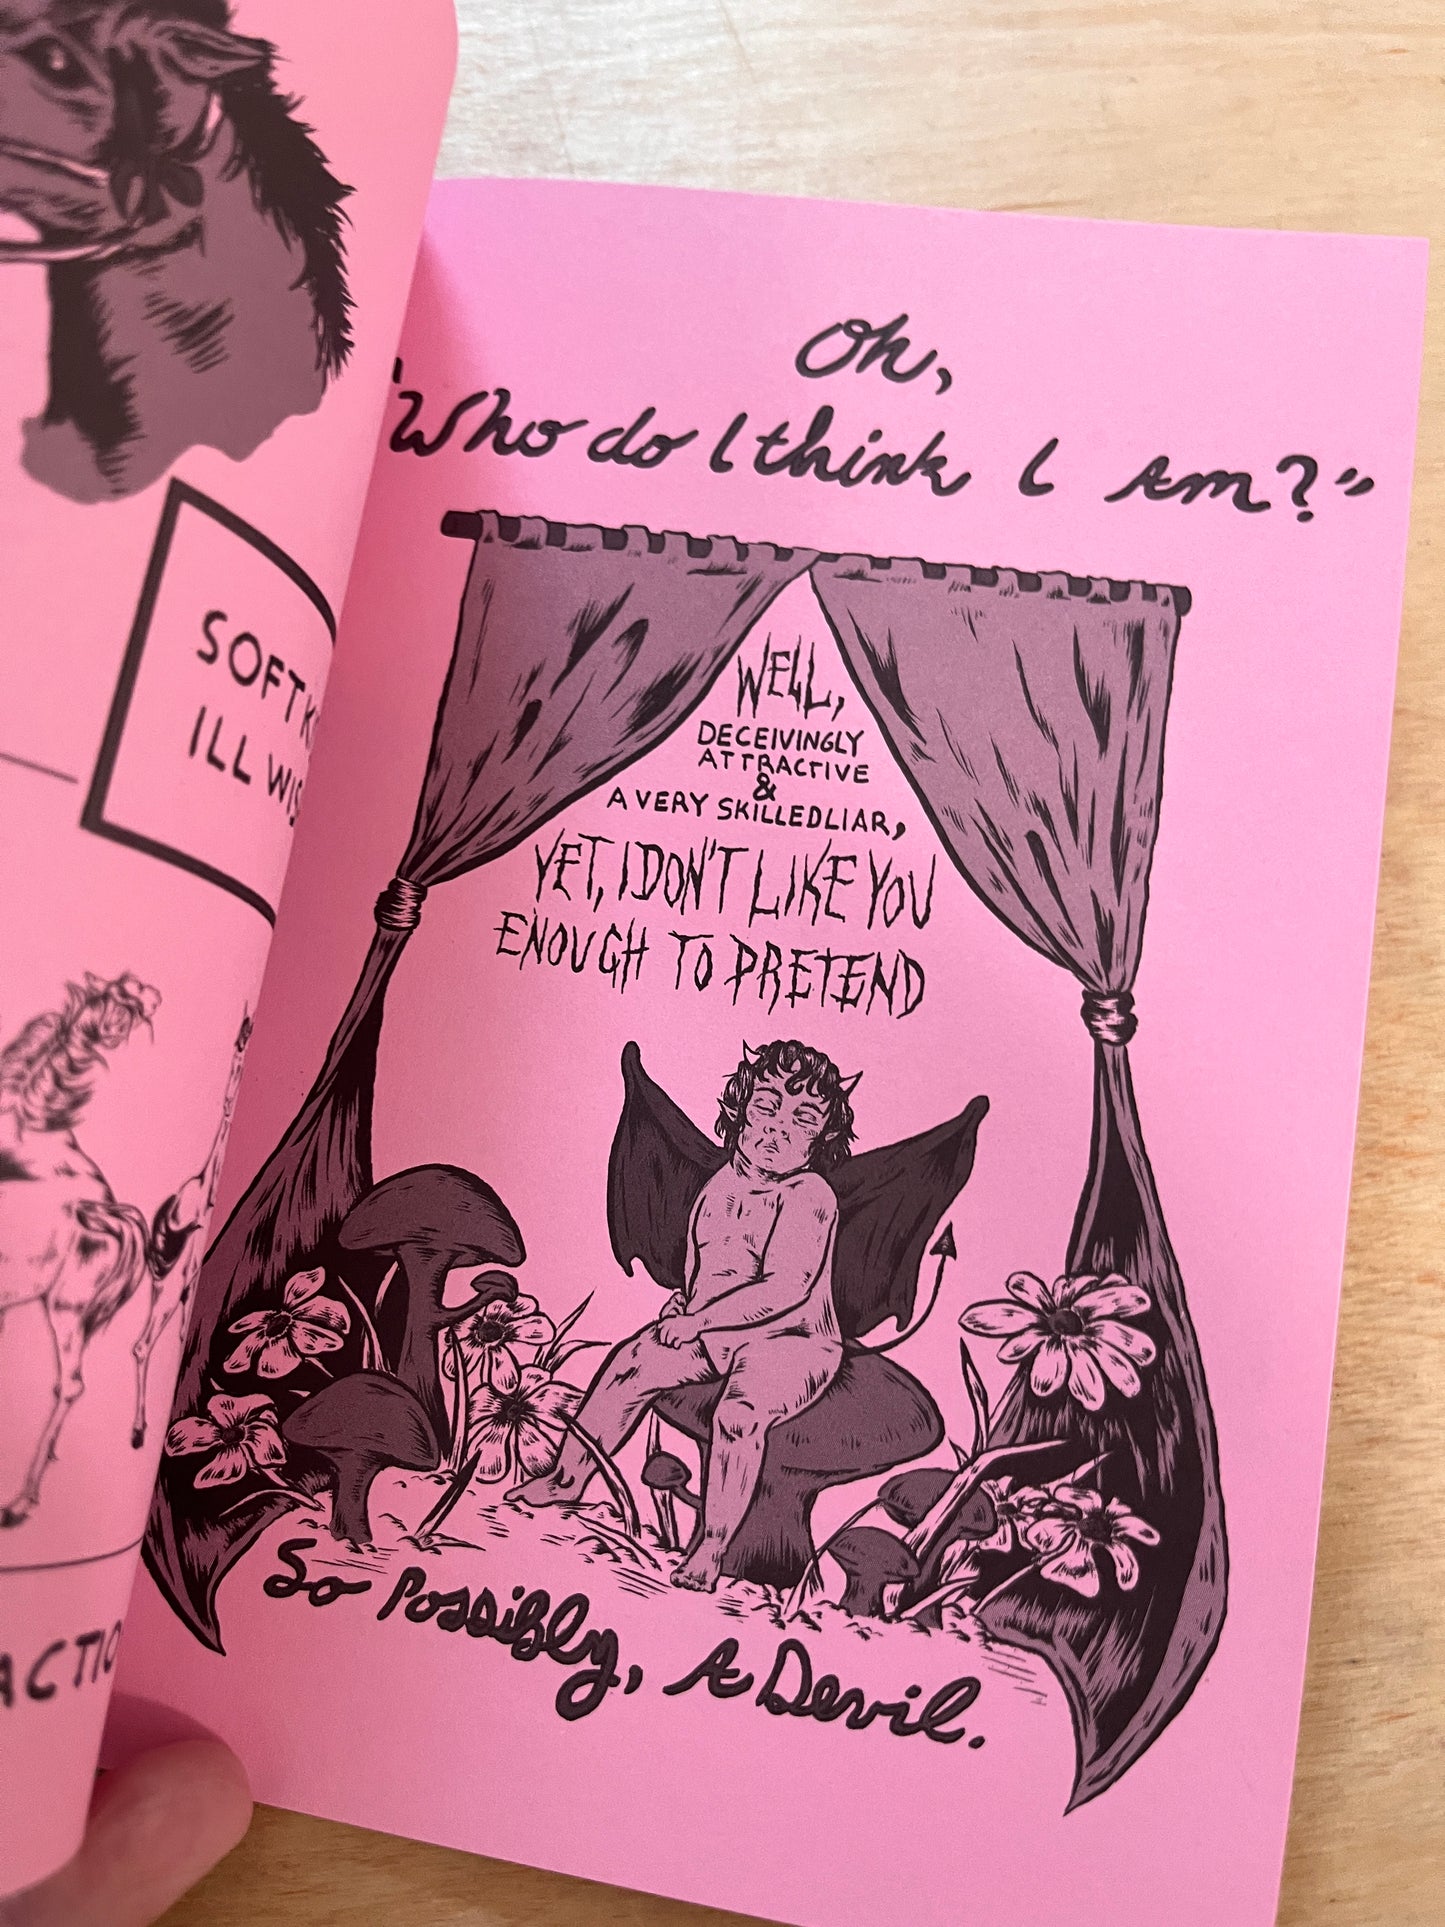 SOFT
ILL
Oh,
"Who do I think I am?"
WELL,
DECEIVINGLY
ATTRACTIVE
&
A VERY SKILLED LIAR,
YET, I DON'T LIKE YOU
ENOUGH TO PRETEND
So Possibly, A Devil.